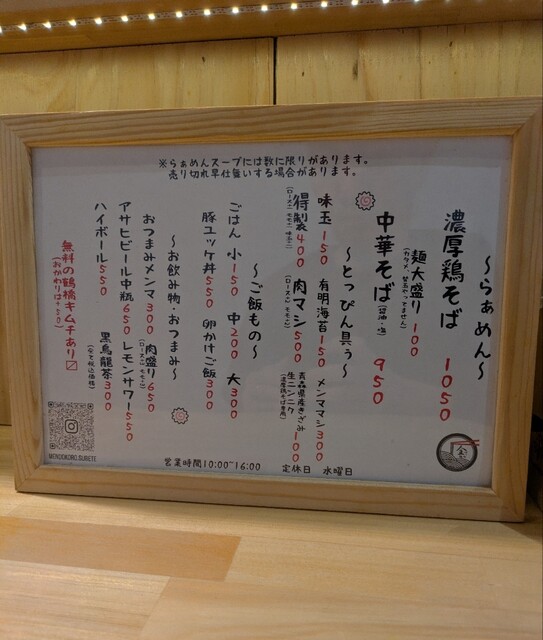 ※らぁめんスープには数に限りがあります。
売り切れ早仕舞いする場合があります。
〜らぁめん〜
濃厚鶏そば 1050
麺大盛り 100
中華そば(醤油・塩) 950
〜とっぴん具ぅ〜
味玉 150 有明海苔 150 メンマ
マシ 300
特製 400 肉マシ 500
青森県産きざみ
生ニンニク 100
〜ご飯もの〜
ごはん 小150 中200 大300
豚ユッケ丼 550 卵かけご飯 300
〜お飲み物・おつまみ〜
おつまみメンマ 300 肉盛り 650
アサヒビール中瓶 650 レモンサワー 550
ハイボール 550 黒烏龍茶 300
(全て税込価格)
無料の鶴橋キムチあり〼
(おかわりは+50)
MENDOKORO.SUBETE
営業時間10:00~16:00 定休日 水曜日